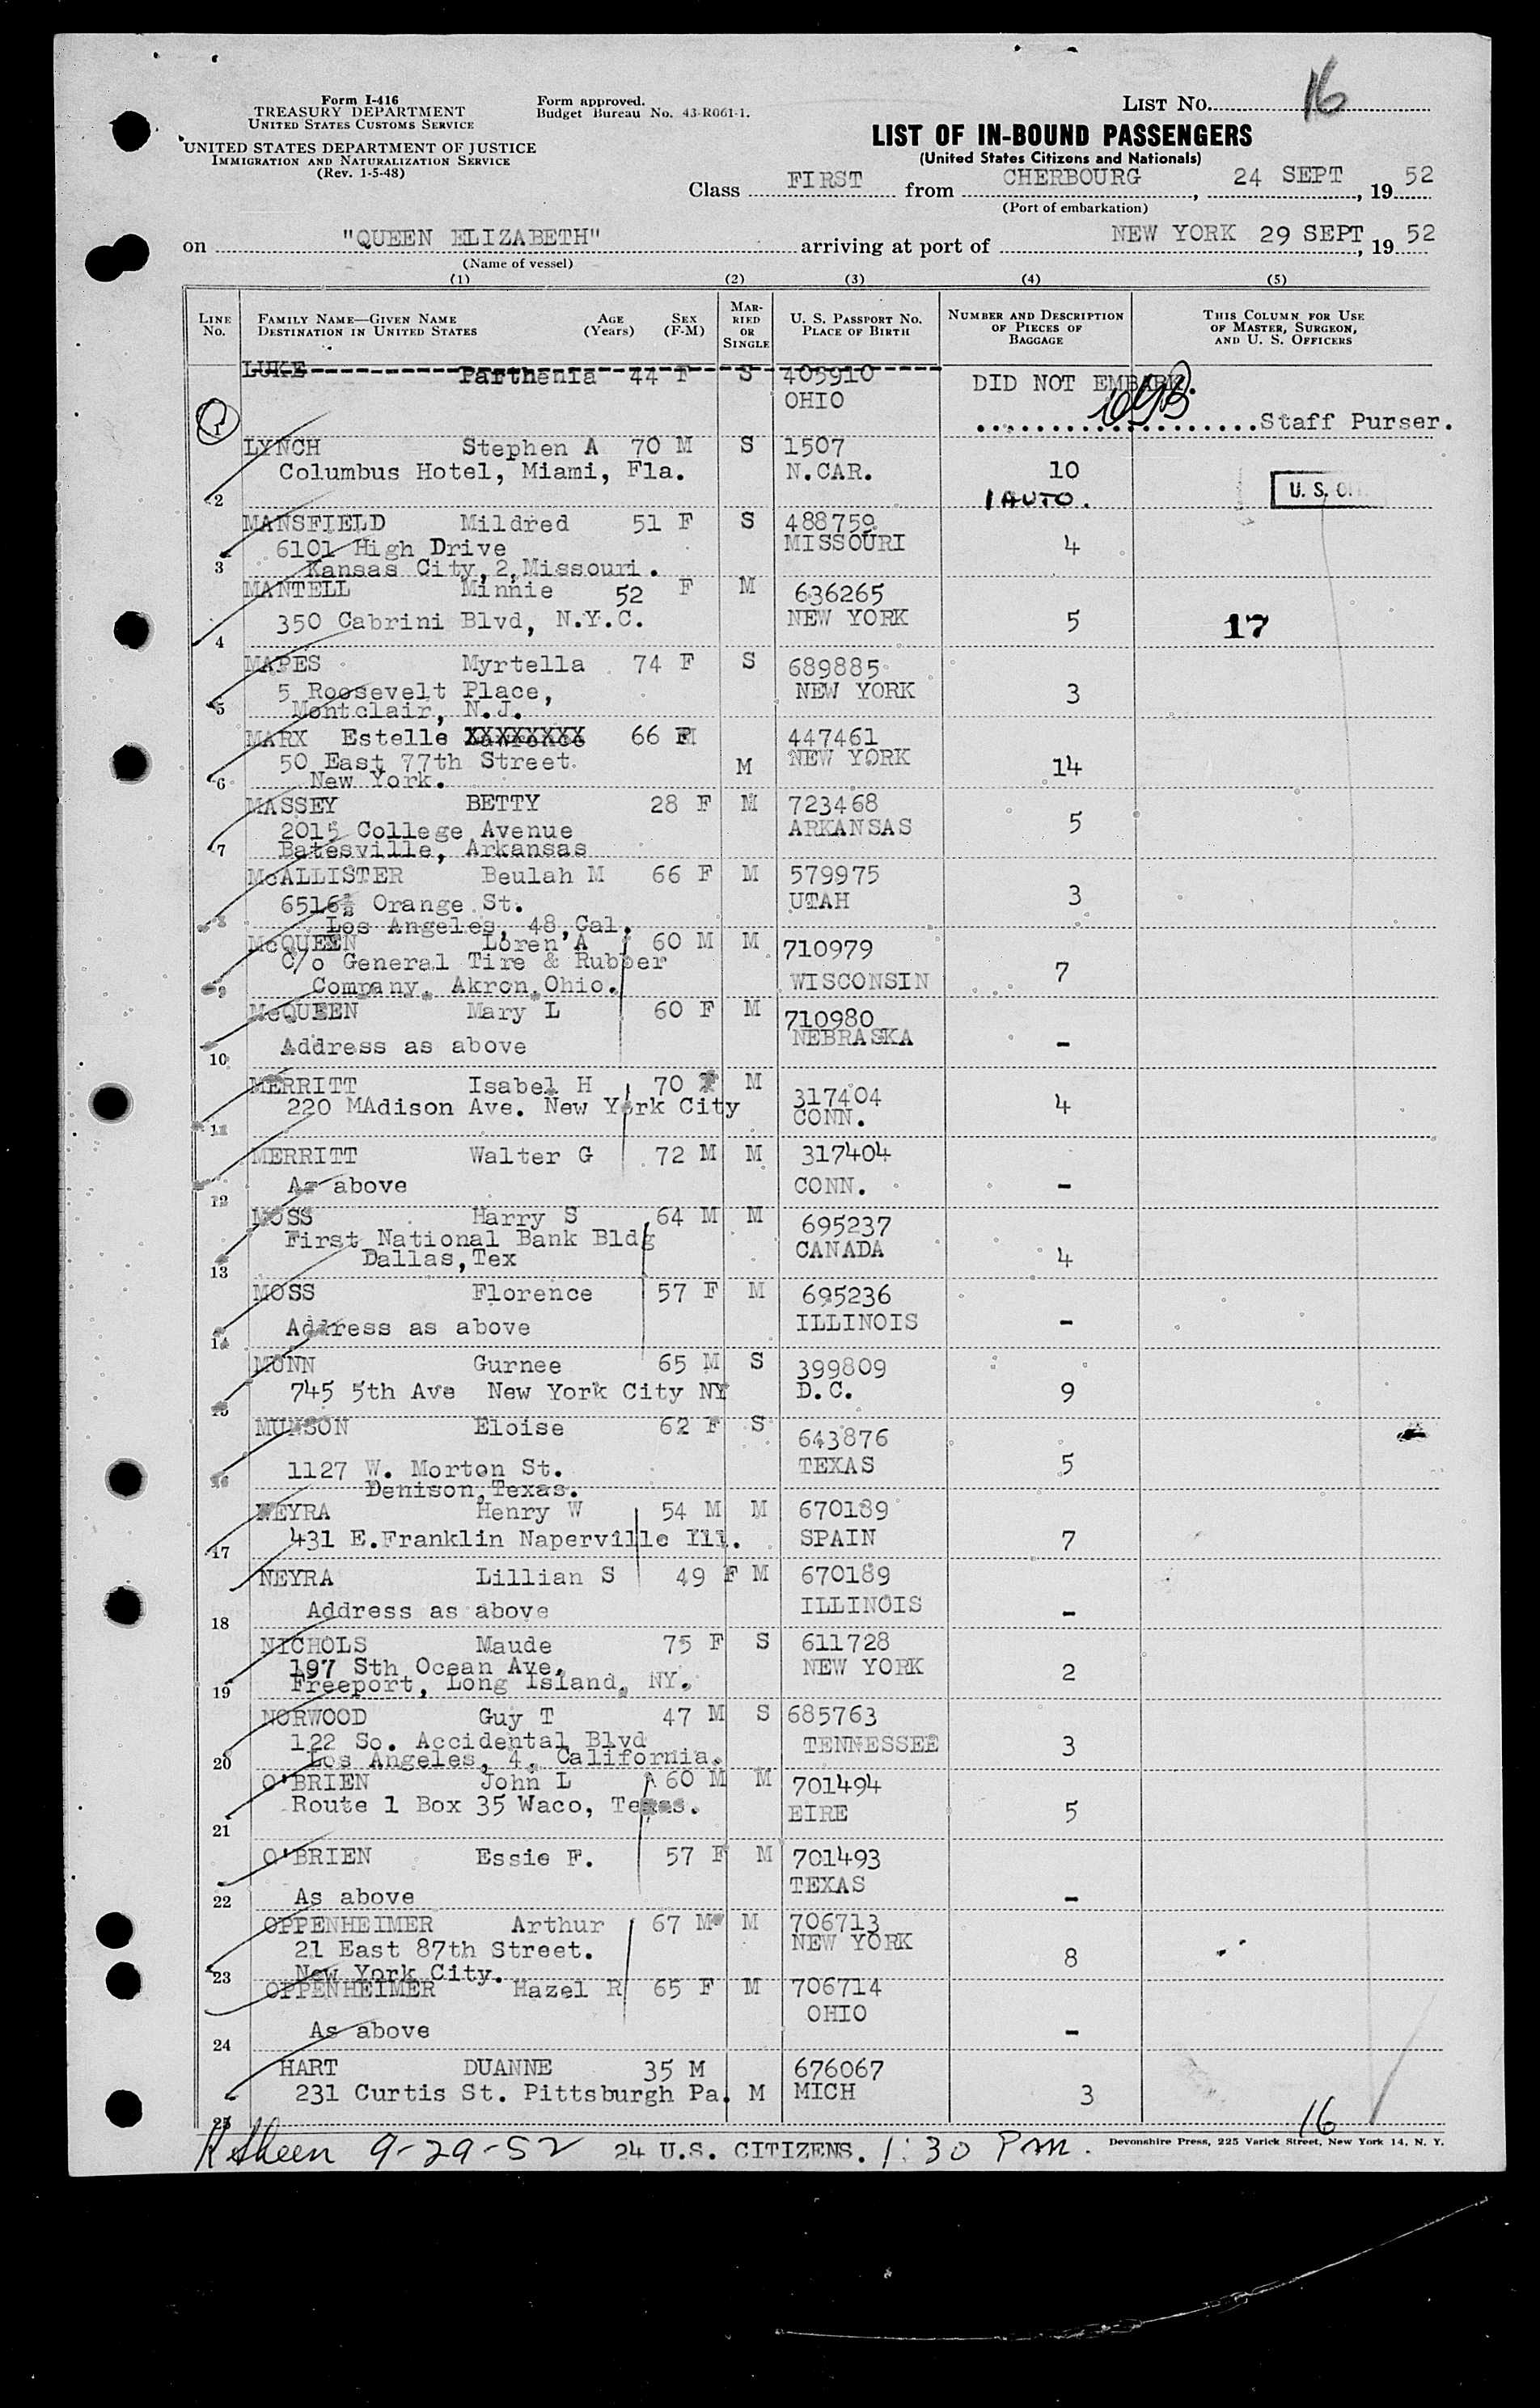 Form I-416
TREASURY DEPARTMENT
UNITED STATES CUSTOMS SERVICE
UNITED STATES DEPARTMENT OF JUSTICE
IMMIGRATION AND NATURALIZATION SERVICE
(Rev. 1-5-48)
Form approved.
Budget Bureau No. 43-R061-1.
LIST NO. 16
LIST OF IN-BOUND PASSENGERS
(United States Citizens and Nationals)
Class FIRST from CHERBOURG, 24 SEPT, 19 52
(Port of embarkation)
on "QUEEN ELIZABETH" arriving at port of NEW YORK 29 SEPT, 19 52
(Name of vessel)
(1) (2) (3) (4) (5)
LINE No. FAMILY NAME—GIVEN NAME DESTINATION IN UNITED STATES AGE (Years) SEX (F-M) MARRIED OR SINGLE U. S. PASSPORT NO. PLACE OF BIRTH NUMBER AND DESCRIPTION OF PIECES OF BAGGAGE THIS COLUMN FOR USE OF MASTER, SURGEON, AND U. S. OFFICERS
LUKE Parthenia 44 F S 405910 DID NOT EMBARK.
OHIO
1 Staff Purser.
LYNCH Stephen A 70 M S 1507
Columbus Hotel, Miami, Fla. N.CAR. 10
2 1 AUTO. U. S.
MANSFIELD Mildred 51 F S 488759
6101 High Drive MISSOURI 4
3 Kansas City, 2, Missouri.
MANTELL Minnie 52 F M 636265
350 Cabrini Blvd, N.Y.C. NEW YORK 5 17
4
MAPES Myrtella 74 F S 689885
5 Roosevelt Place, NEW YORK 3
5 Montclair, N.J.
MARX Estelle XXXXXXXX 66 F 447461
50 East 77th Street. M NEW YORK 14
6 New York.
MASSEY BETTY 28 F M 723468
2015 College Avenue ARKANSAS 5
7 Batesville, Arkansas
McALLISTER Beulah M 66 F M 579975
6516½ Orange St. UTAH 3
8 Los Angeles, 48, Cal.
McQUEEN Loren A 60 M M 710979
C/o General Tire & Rubber WISCONSIN 7
9 Company, Akron, Ohio.
McQUEEN Mary L 60 F M 710980
NEBRASKA
10 Address as above -
MERRITT Isabel H 70 F M 317404
220 MAdison Ave. New York City CONN. 4
11
MERRITT Walter G 72 M M 317404
As above CONN. -
12
MOSS Harry S 64 M M 695237
First National Bank Bldg CANADA 4
13 Dallas, Tex
MOSS Florence 57 F M 695236
Address as above ILLINOIS -
14
MUNN Gurnee 65 M S 399809
745 5th Ave New York City NY D.C. 9
15
MUNSON Eloise 62 F S 643876
1127 W. Morton St. TEXAS 5
16 Denison, Texas.
NEYRA Henry W 54 M M 670189
431 E.Franklin Naperville Ill. SPAIN 7
17
NEYRA Lillian S 49 F M 670189
Address as above ILLINOIS -
18
NICHOLS Maude 75 F S 611728
197 Sth Ocean Ave, NEW YORK 2
19 Freeport, Long Island, NY.
NORWOOD Guy T 47 M S 685763
122 So. Accidental Blvd TENNESSEE 3
20 Los Angeles, 4, California.
O'BRIEN John L 60 M M 701494
Route 1 Box 35 Waco, Texas. EIRE 5
21
O'BRIEN Essie F. 57 F M 701493
TEXAS
22 As above -
OPPENHEIMER Arthur 67 M M 706713
21 East 87th Street. NEW YORK 8
23 New York City.
OPPENHEIMER Hazel R 65 F M 706714
OHIO
24 As above -
HART DUANNE 35 M 676067
231 Curtis St. Pittsburgh Pa. M MICH 3
25 16
9-29-52 24 U.S. CITIZENS. 1:30 P.m. Devonshire Press, 225 Varick Street, New York 14, N. Y.